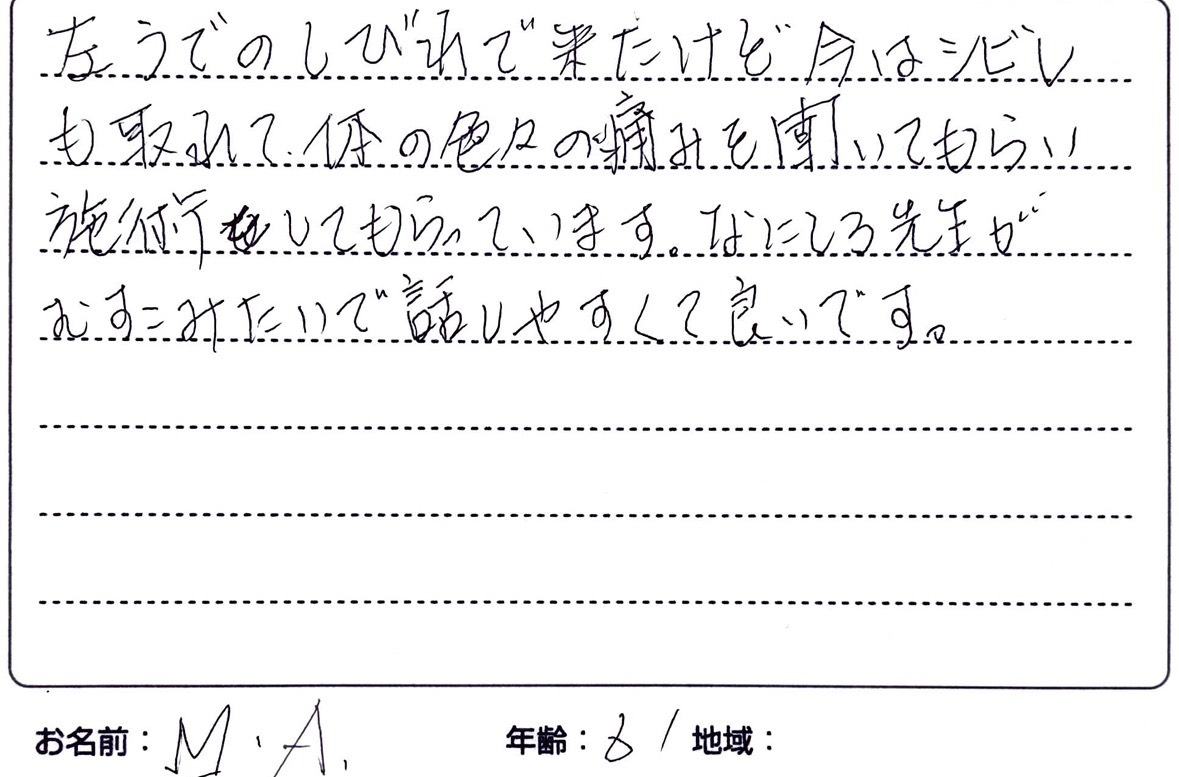 左うでのしびれで来たけど今はシビレ
も取れて、体の色々の痛みを聞いてもらい
施術をしてもらっています。なにしろ先生が
むすこみたいで話しやすくて良いです。
お名前： M.A. 年齢： 81 地域：